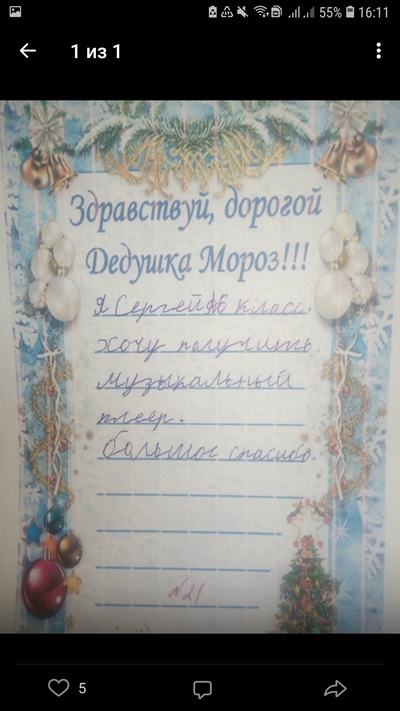 55% 16:11
1 из 1
Здравствуй, дорогой
Дедушка Мороз!!!
Я Сергей 6 класс.
хочу получить
музыкальный
плеер.
большое спасибо.
№21
5